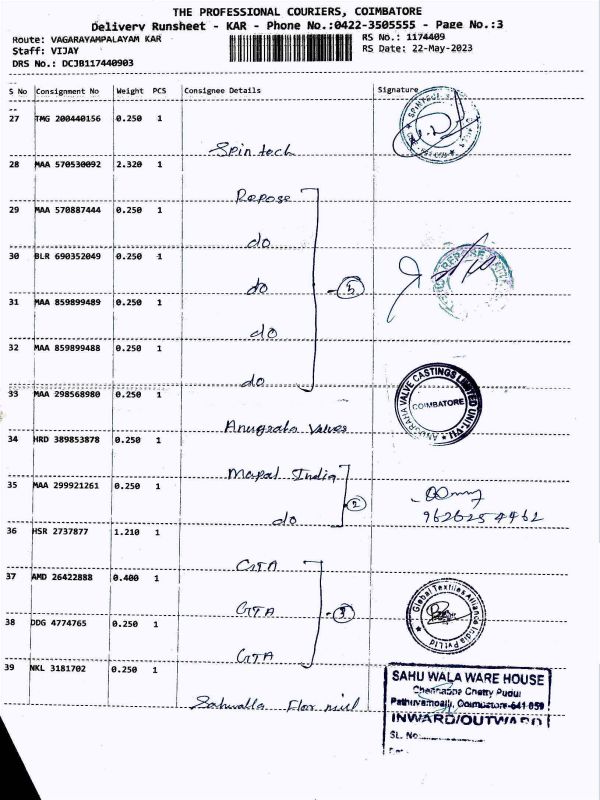 THE PROFESSIONAL COURIERS, COIMBATORE
Delivery Runsheet - KAR - Phone No.:0422-3505555 - Page No.:3
Route: VAGARAYAMPALAYAM KAR
RS No.: 1174409
Staff: VIJAY
RS Date: 22-May-2023
DRS No.: DCJB117440903
S No Consignment No Weight PCS Consignee Details Signature
27 TMG 200440156 0.250 1
Spintech
28 MAA 570530092 2.320 1
Repose
29 MAA 570887444 0.250 1
do
30 BLR 690352049 0.250 1
do
5
31 MAA 859899489 0.250 1
do
32 MAA 859899488 0.250 1
do
33 MAA 298568980 0.250 1
Anugraha Valves
ANUGRAHA VALVE CASTINGS LIMITED UNIT-VII
COIMBATORE
34 HRD 389853878 0.250 1
Mapal India
35 MAA 299921261 0.250 1
do
2
9626254462
36 HSR 2737877 1.210 1
GTA
37 AMD 26422888 0.400 1
GTA
3
Global Textiles Alliance India Pvt Ltd
38 DDG 4774765 0.250 1
GTA
39 NKL 3181702 0.250 1
Sahuwalla Flor mill
SAHU WALA WARE HOUSE
Chennappa Chetty Pudur
Pathuvampalli, Coimbatore-641 059
INWARD/OUTWARD
SL. No: